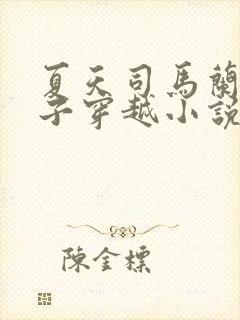 夏天司馬蘭
子穿越小說
陳金標